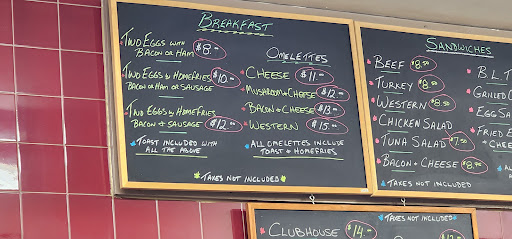 BREAKFAST
TWO EGGS WITH
BACON OR HAM $8.00
TWO EGGS & HOMEFRIES
BACON OR HAM OR SAUSAGE $10.00
TWO EGGS & HOMEFRIES
BACON & SAUSAGE $12.00
TOAST INCLUDED WITH
ALL THE ABOVE
OMELETTES
CHEESE $11.00
MUSHROOM & CHEESE $12.00
BACON & CHEESE $13.00
WESTERN $15.00
ALL OMELETTES INCLUDE
TOAST & HOMEFRIES
TAXES NOT INCLUDED
SANDWICHES
BEEF $8.50
TURKEY $8.50
WESTERN $8.50
CHICKEN SALAD
TUNA SALAD $7.50
BACON & CHEESE
TAXES NOT INCLUDED
B.L.T
GRILLED
EGG SA
FRIED E
& CHEE
TAXES NOT INCLUDED
CLUBHOUSE $14.00